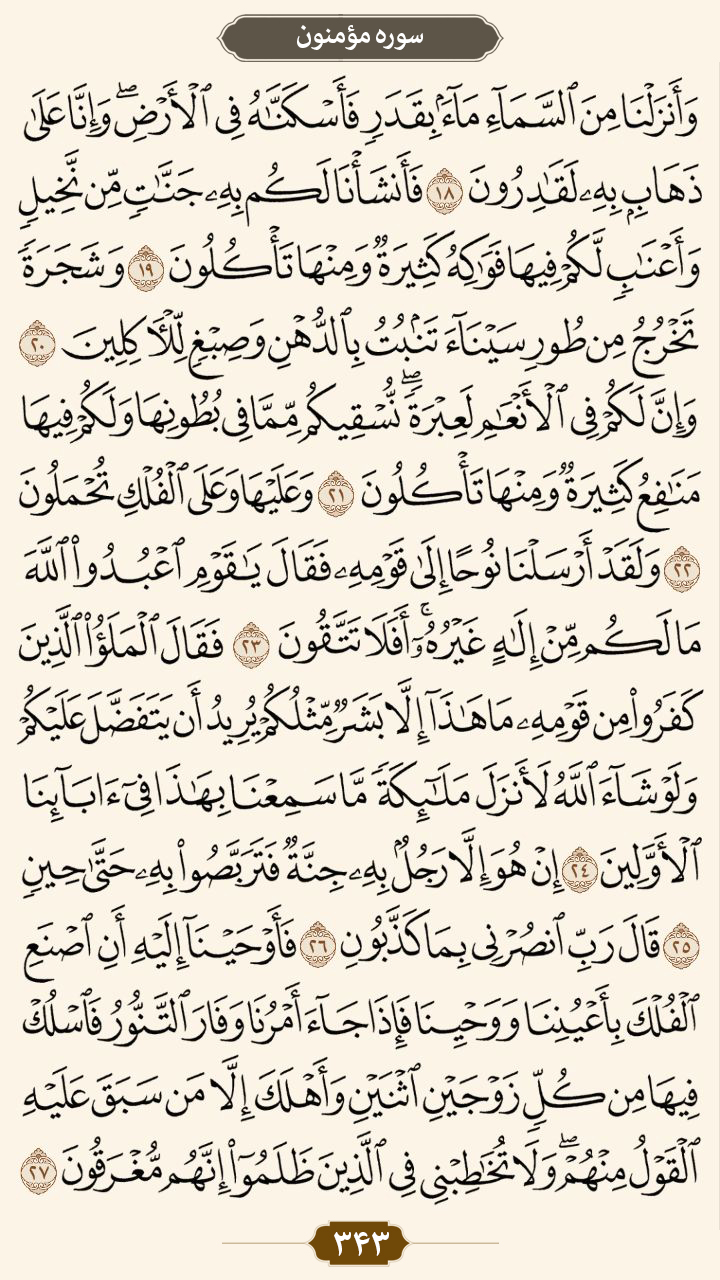 سوره مؤمنون
وَأَنزَلْنَا مِنَ ٱلسَّمَآءِ مَآءًۢ بِقَدَرٍ فَأَسْكَنَّٰهُ فِى ٱلْأَرْضِۖ وَإِنَّا عَلَىٰ
ذَهَابٍۭ بِهِۦ لَقَٰدِرُونَ ۱۸ فَأَنشَأْنَا لَكُم بِهِۦ جَنَّٰتٍ مِّن نَّخِيلٍ
وَأَعْنَٰبٍ لَّكُمْ فِيهَا فَوَٰكِهُ كَثِيرَةٌ وَمِنْهَا تَأْكُلُونَ ۱۹ وَشَجَرَةً
تَخْرُجُ مِن طُورِ سَيْنَآءَ تَنۢبُتُ بِٱلدُّهْنِ وَصِبْغٍ لِّلْءَاكِلِينَ ۲۰
وَإِنَّ لَكُمْ فِى ٱلْأَنْعَٰمِ لَعِبْرَةًۖ نُّسْقِيكُم مِّمَّا فِى بُطُونِهَا وَلَكُمْ فِيهَا
مَنَٰفِعُ كَثِيرَةٌ وَمِنْهَا تَأْكُلُونَ ۲۱ وَعَلَيْهَا وَعَلَى ٱلْفُلْكِ تُحْمَلُونَ
۲۲ وَلَقَدْ أَرْسَلْنَا نُوحًا إِلَىٰ قَوْمِهِۦ فَقَالَ يَٰقَوْمِ ٱعْبُدُوا۟ ٱللَّهَ
مَا لَكُم مِّنْ إِلَٰهٍ غَيْرُهُۥٓۚ أَفَلَا تَتَّقُونَ ۲۳ فَقَالَ ٱلْمَلَؤُا۟ ٱلَّذِينَ
كَفَرُوا۟ مِن قَوْمِهِۦ مَا هَٰذَآ إِلَّا بَشَرٌ مِّثْلُكُمْ يُرِيدُ أَن يَتَفَضَّلَ عَلَيْكُمْ
وَلَوْ شَآءَ ٱللَّهُ لَأَنزَلَ مَلَٰٓئِكَةً مَّا سَمِعْنَا بِهَٰذَا فِىٓ ءَابَآئِنَا
ٱلْأَوَّلِينَ ۲۴ إِنْ هُوَ إِلَّا رَجُلٌۢ بِهِۦ جِنَّةٌ فَتَرَبَّصُوا۟ بِهِۦ حَتَّىٰ حِينٍ
۲۵ قَالَ رَبِّ ٱنصُرْنِى بِمَا كَذَّبُونِ ۲۶ فَأَوْحَيْنَآ إِلَيْهِ أَنِ ٱصْنَعِ
ٱلْفُلْكَ بِأَعْيُنِنَا وَوَحْيِنَا فَإِذَا جَآءَ أَمْرُنَا وَفَارَ ٱلتَّنُّورُ فَٱسْلُكْ
فِيهَا مِن كُلٍّ زَوْجَيْنِ ٱثْنَيْنِ وَأَهْلَكَ إِلَّا مَن سَبَقَ عَلَيْهِ
ٱلْقَوْلُ مِنْهُمْۖ وَلَا تُخَٰطِبْنِى فِى ٱلَّذِينَ ظَلَمُوٓا۟ إِنَّهُم مُّغْرَقُونَ ۲۷
۳۴۳